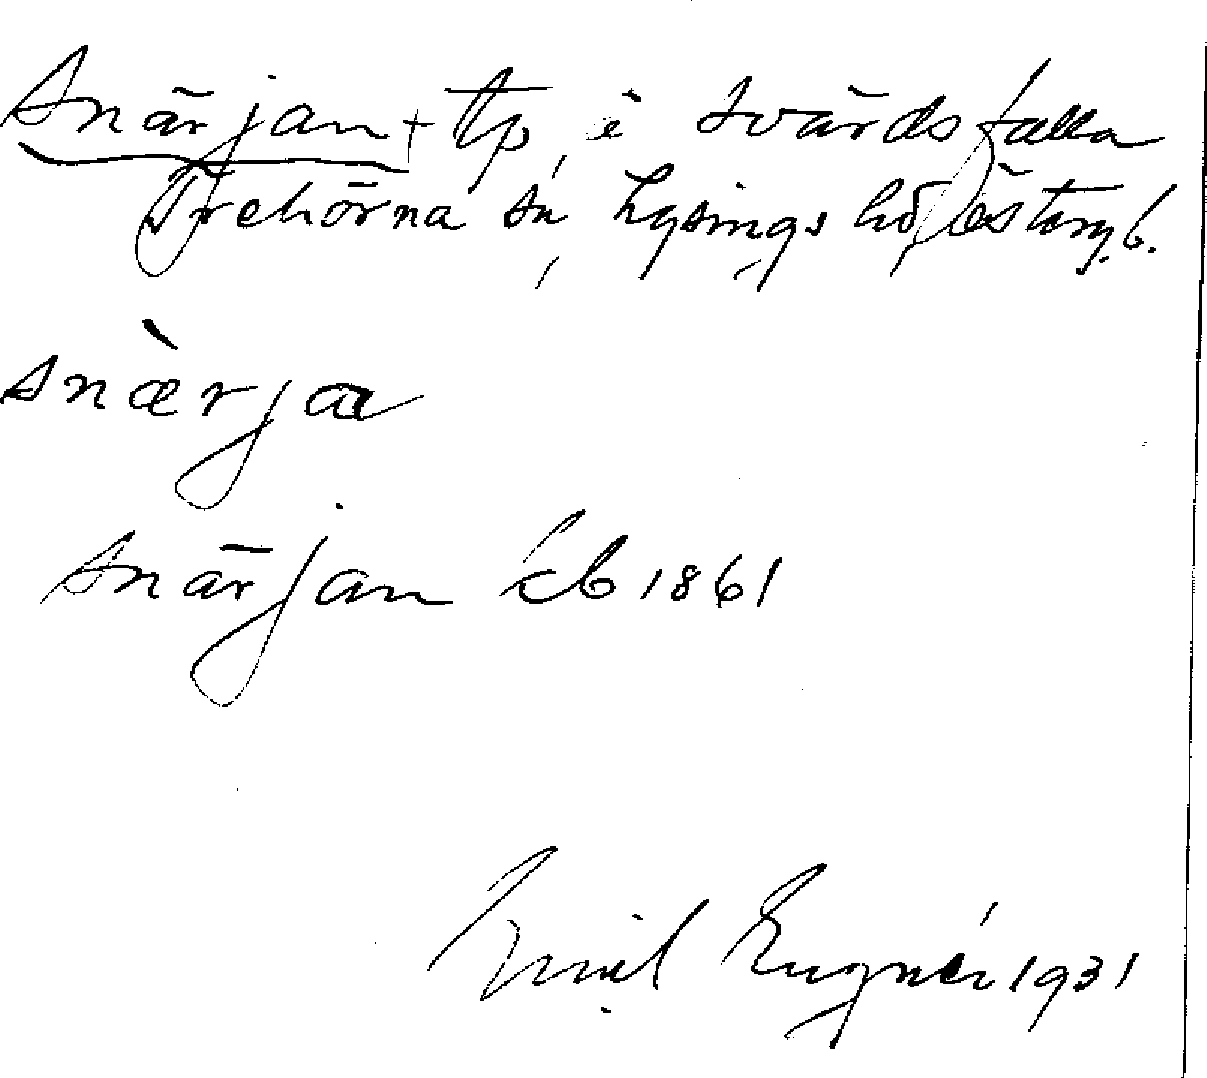 Snärjan + tp, è Svärdsfalla
Trehörna sn, Lysings hd, Östergb.
snæ̀rja
Snärjan kb 1861
Emil 1931